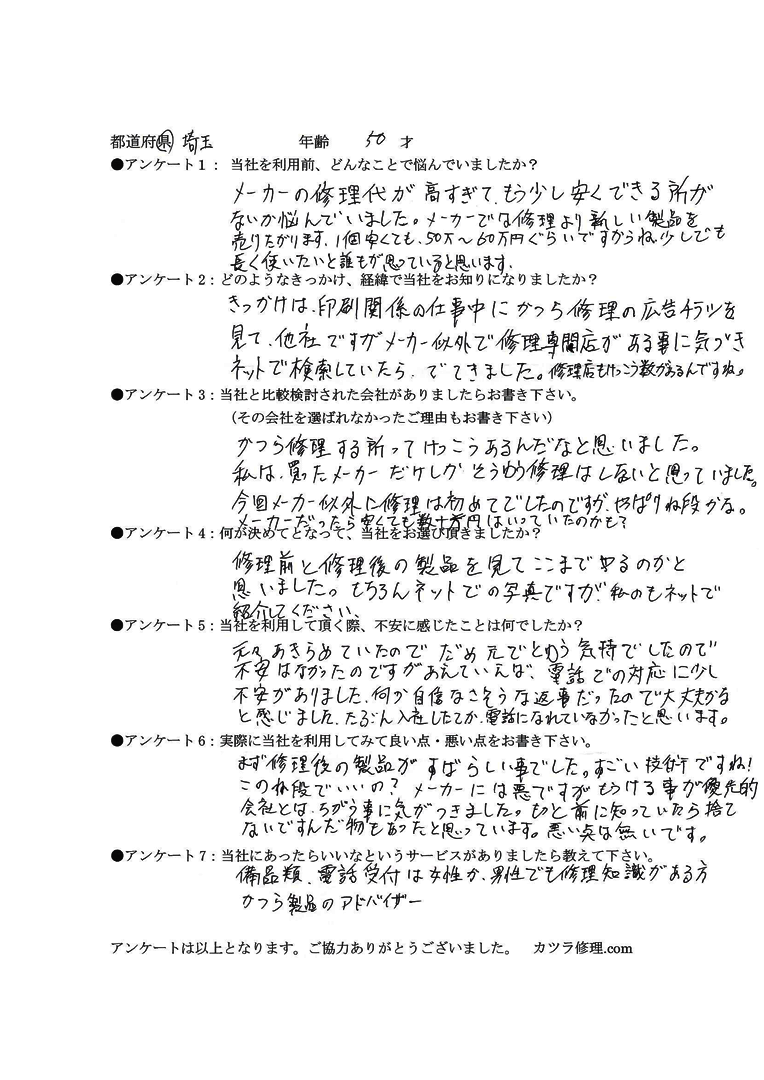 都道府県 埼玉 年齢 50 才
●アンケート1： 当社を利用前、どんなことで悩んでいましたか？
メーカーの修理代が高すぎて、もう少し安くできる所が
ないか悩んでいました。メーカーでは修理より新しい製品を
売りたがります。1個安くても、50万～60万円ぐらいですからね。少しでも
長く使いたいと誰もが思っていると思います。
●アンケート2：どのようなきっかけ、経緯で当社をお知りになりましたか？
きっかけは、印刷関係の仕事中にかつら修理の広告チラシを
見て、他社ですがメーカー以外で修理専門店がある事に気づき
ネットで検索していたら、でてきました。修理店もけっこう数があるんですね。
●アンケート3：当社と比較検討された会社がありましたらお書き下さい。
（その会社を選ばれなかったご理由もお書き下さい）
かつら修理する所ってけっこうあるんだなと思いました。
私は、買ったメーカーだけしかそうゆう修理はしないと思っていました。
今回メーカー以外に修理は初めてでしたのですが、やっぱりね段かな。
メーカーだったら安くても数十万円はいっていたのかも？
●アンケート4：何が決めてとなって、当社をお選び頂きましたか？
修理前と修理後の製品を見てここまでやるのかと
思いました。もちろんネットでの写真ですが、私のもネットで
紹介してください。
●アンケート5：当社を利用して頂く際、不安に感じたことは何でしたか？
元々あきらめていたのでだめ元でとゆう気持でしたので
不安はなかったのですがあえていえば、電話での対応に少し
不安がありました、何か自信なさそうな返事だったので大丈夫かな
と感じました、たぶん入社したてか、電話になれていなかったと思います。
●アンケート6：実際に当社を利用してみて良い点・悪い点をお書き下さい。
まず修理後の製品がすばらしい事でした。すごい技術ですね！
このね段でいいの？ メーカーには悪ですがもうける事が優先的
会社とは、ちがう事に気がつきました。もっと前に知っていたら捨て
ないですんだ物もあったと思っています。悪い点は無いです。
●アンケート7：当社にあったらいいなというサービスがありましたら教えて下さい。
備品類、電話受付は女性か、男性でも修理知識がある方
かつら製品のアドバイザー
アンケートは以上となります。ご協力ありがとうございました。 カツラ修理.com